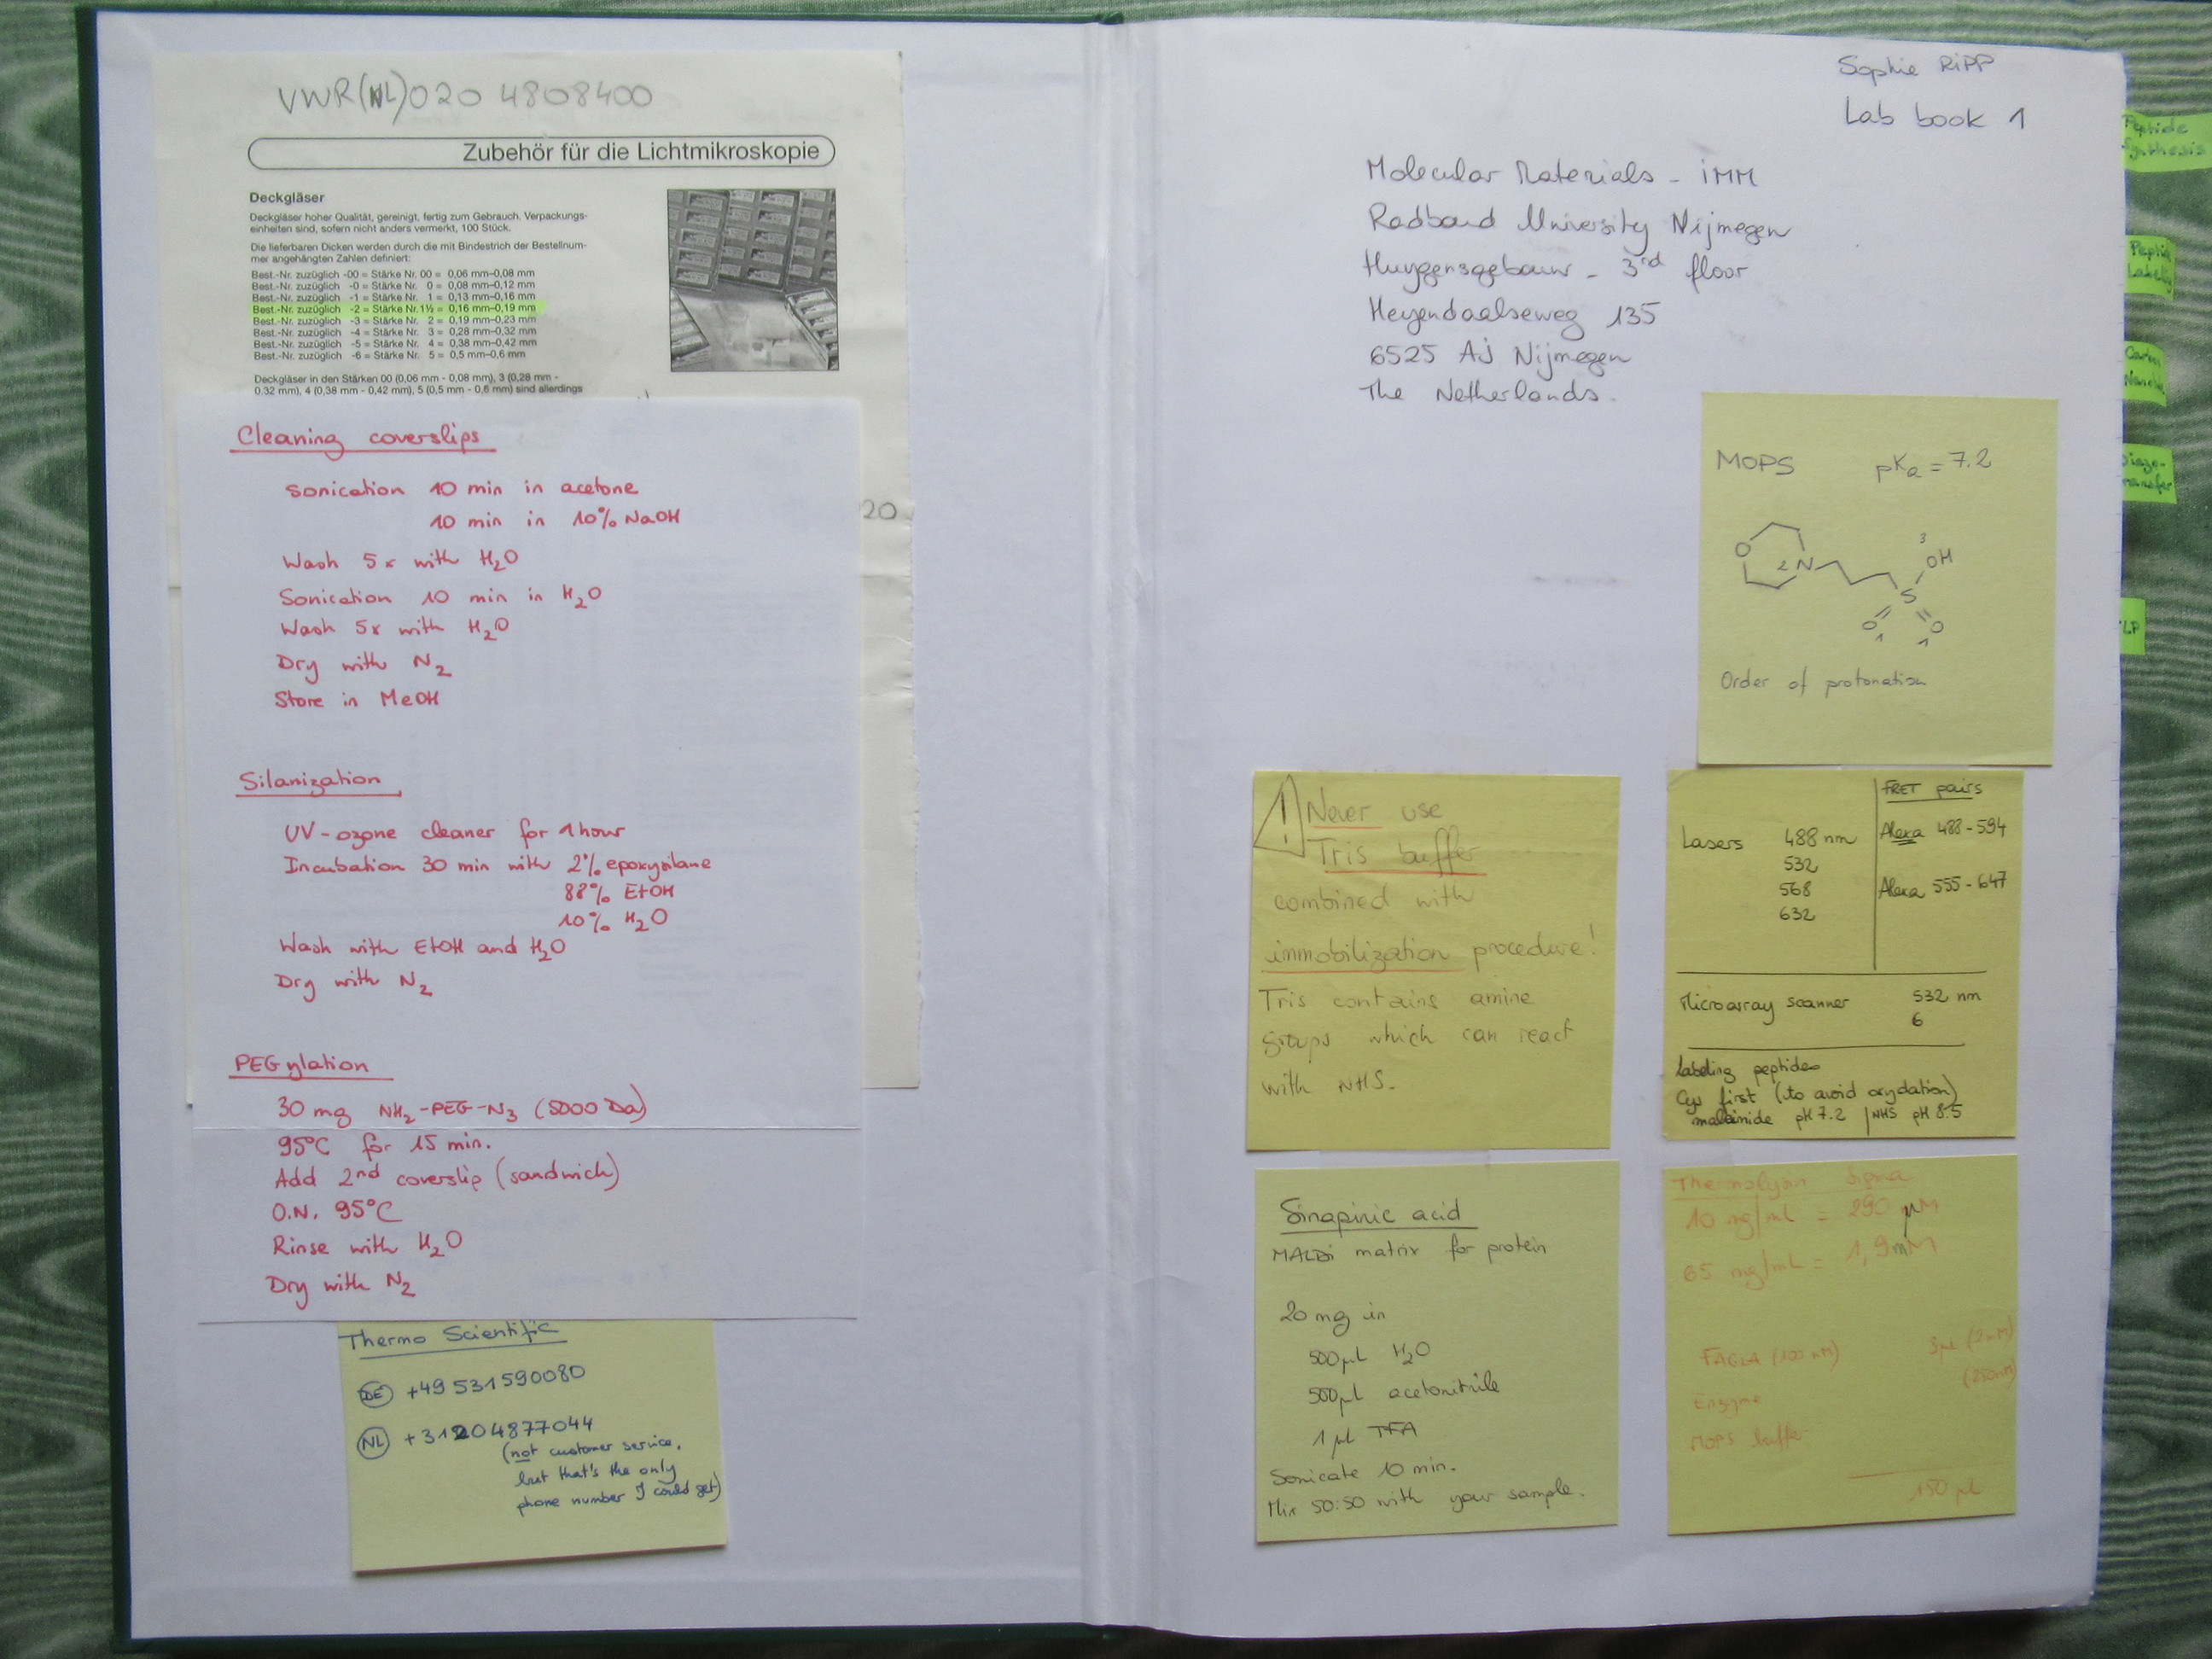 VWR(NL)020 4808400
Zubehör für die Lichtmikroskopie
Deckgläser
Deckgläser hoher Qualität, gereinigt, fertig zum Gebrauch. Verpackungs-
einheiten sind, sofern nicht anders vermerkt, 100 Stück.
Die lieferbaren Dicken werden durch die mit Bindestrich der Bestellnum-
mer angehängten Zahlen definiert:
Best.-Nr. zuzüglich -00 = Stärke Nr. 00 = 0,06 mm–0,08 mm
Best.-Nr. zuzüglich -0 = Stärke Nr. 0 = 0,08 mm–0,12 mm
Best.-Nr. zuzüglich -1 = Stärke Nr. 1 = 0,13 mm–0,16 mm
Best.-Nr. zuzüglich -2 = Stärke Nr. 1½ = 0,16 mm–0,19 mm
Best.-Nr. zuzüglich -3 = Stärke Nr. 2 = 0,19 mm–0,23 mm
Best.-Nr. zuzüglich -4 = Stärke Nr. 3 = 0,28 mm–0,32 mm
Best.-Nr. zuzüglich -5 = Stärke Nr. 4 = 0,38 mm–0,42 mm
Best.-Nr. zuzüglich -6 = Stärke Nr. 5 = 0,5 mm–0,6 mm
Deckgläser in den Stärken 00 (0,06 mm - 0,08 mm), 3 (0,28 mm -
0,32 mm), 4 (0,38 mm - 0,42 mm), 5 (0,5 mm - 0,6 mm) sind allerdings
20
Cleaning coverslips
Sonication 10 min in acetone
10 min in 10% NaOH
Wash 5x with H2O
Sonication 10 min in H2O
Wash 5x with H2O
Dry with N2
Store in MeOH
Silanization
UV-ozone cleaner for 1 hour
Incubation 30 min with 2% epoxysilane
88% EtOH
10% H2O
Wash with EtOH and H2O
Dry with N2
PEGylation
30 mg NH2-PEG-N3 (5000 Da)
95°C for 15 min.
Add 2nd coverslip (sandwich)
O.N. 95°C
Rinse with H2O
Dry with N2
Thermo Scientific
DE +49 531590080
NL +31204877044
(not customer service,
but that's the only
phone number I could get)
Sophie RiPP
Lab book 1
Molecular Materials - iMM
Radboud University Nijmegen
Huygensgebouw - 3rd floor
Heyendaalseweg 135
6525 AJ Nijmegen
The Netherlands.
MOPS pKa = 7.2
3
O 2 N OH
S
O O
1 1
Order of protonation
! Never use
Tris buffer
combined with
immobilization procedure!
Tris contains amine
groups which can react
with NHS.
FRET pairs
Lasers 488 nm Alexa 488-594
532
568 Alexa 555-647
632
Microarray scanner 532 nm
6
Labeling peptides
Cys first (to avoid oxydation)
maleinide pH 7.2 | NHS pH 8.5
Sinapinic acid
MALDi matrix for protein
20 mg in
500 µl H2O
500 µl acetonitrile
1 µl TFA
Sonicate 10 min.
Mix 50:50 with your sample.
Thermolysin Sigma
10 mg/mL = 290 µM
65 mg/mL = 1,9mM
FAGLA (100 mM) 3µl (2mM)
Enzyme (250nM)
MOPS buffer
150 µl
Peptide
Synthesis
Peptide
Labeling
Diazo-
transfer
LP